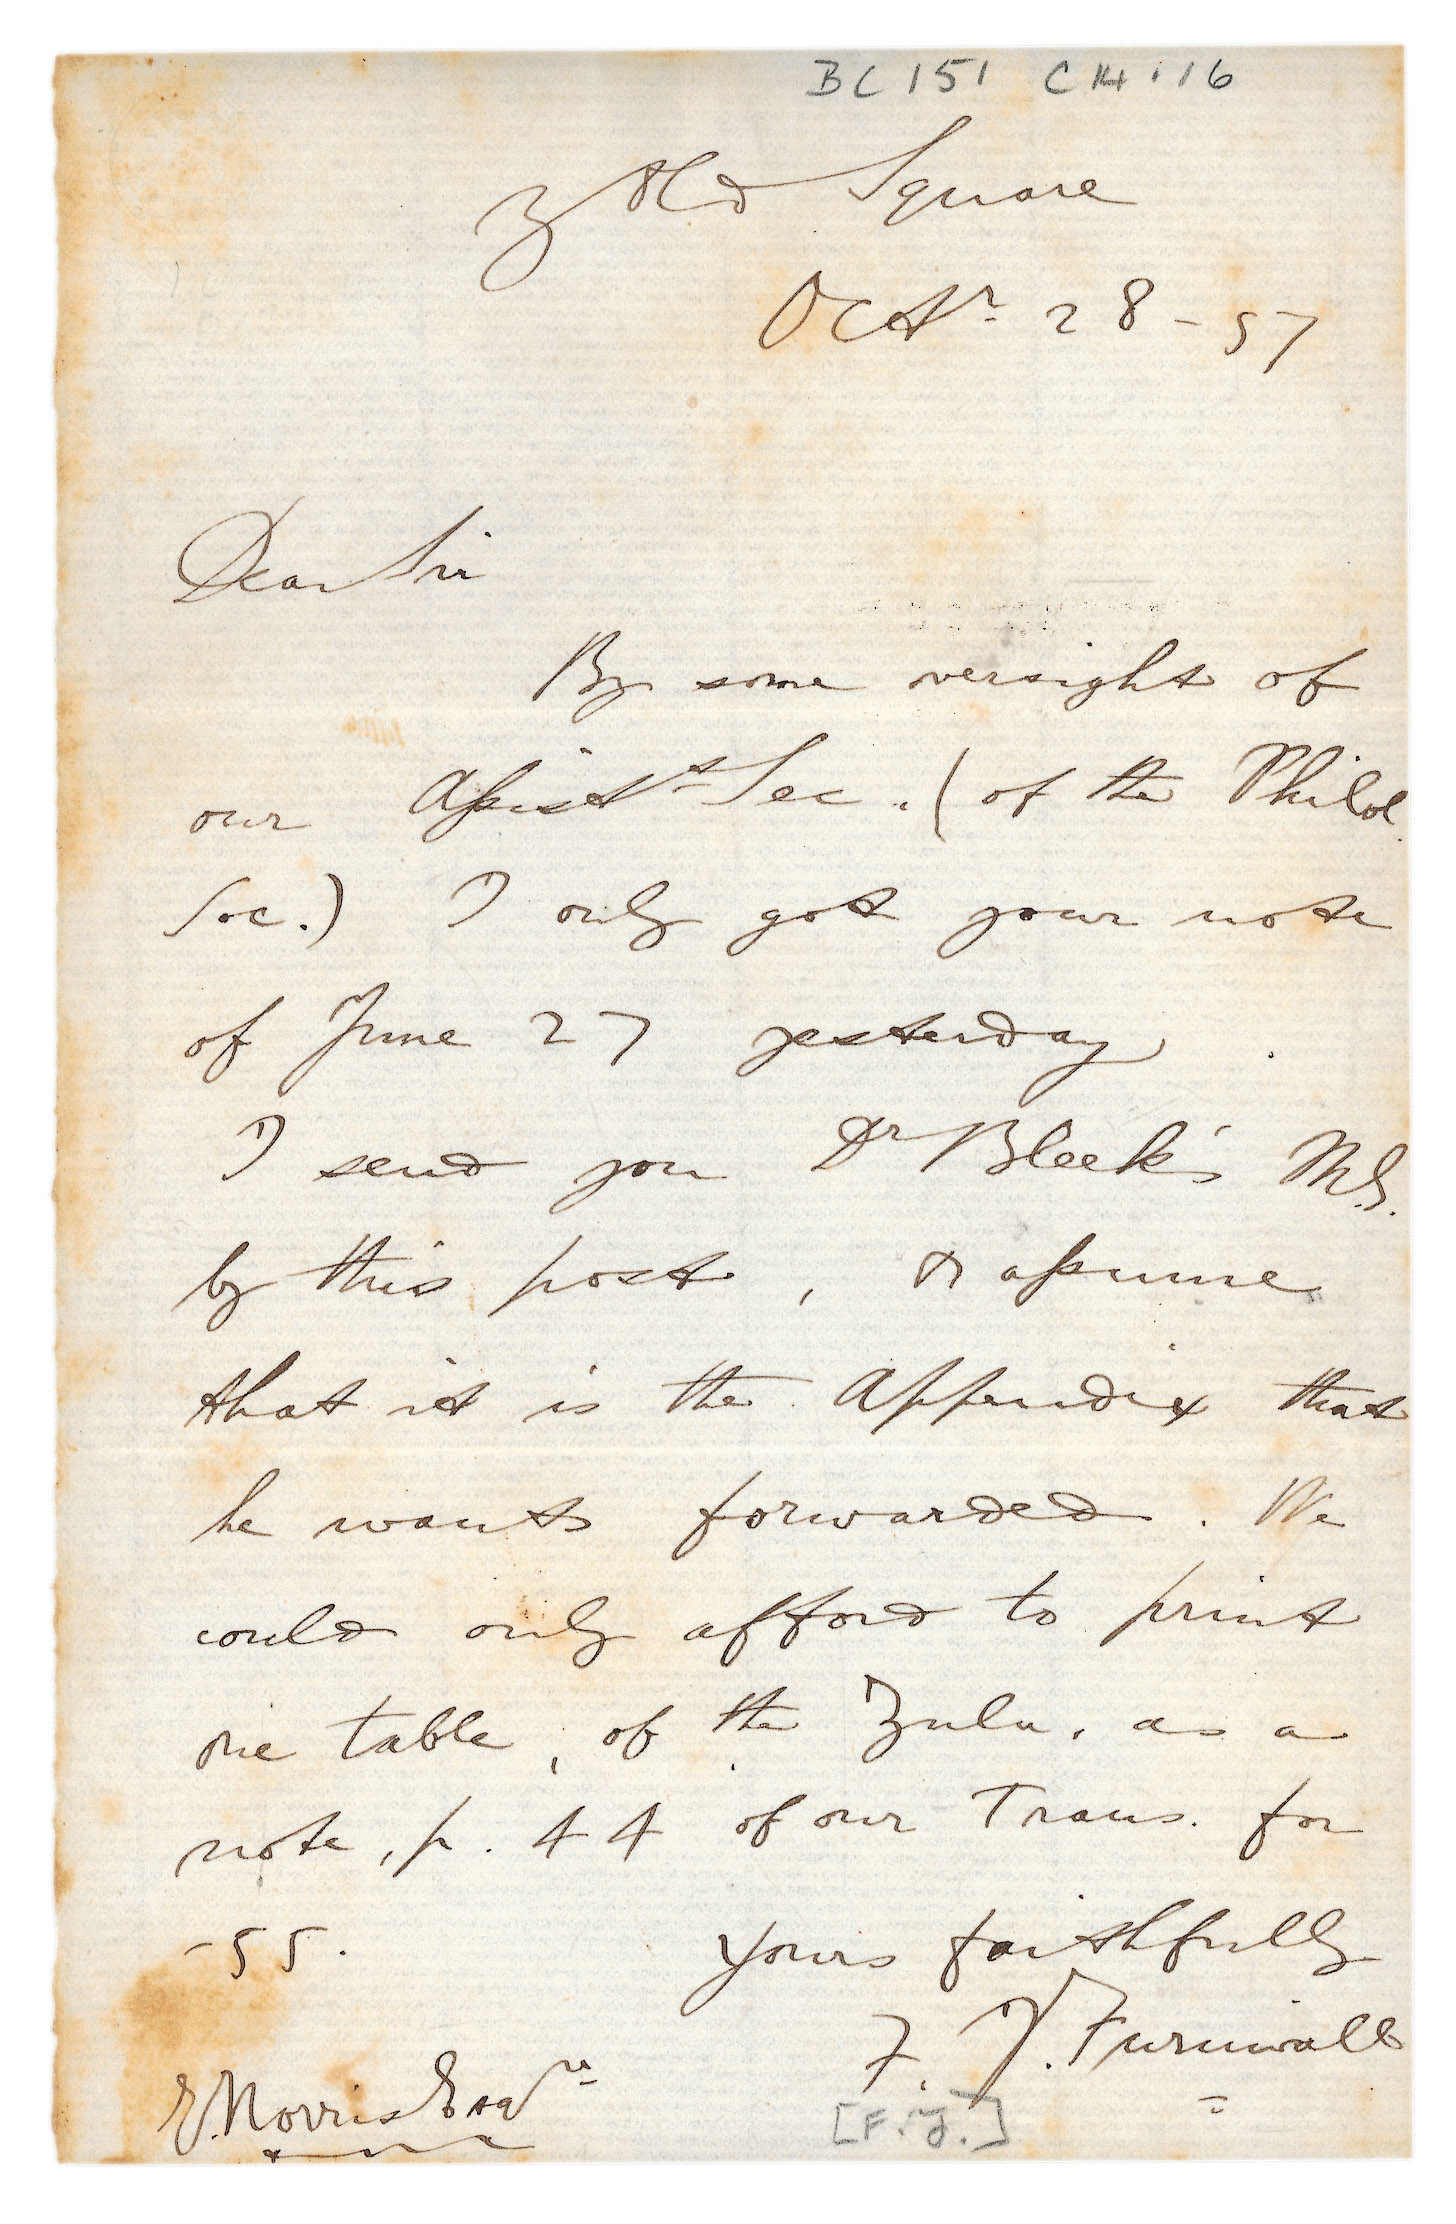 BC 151 C14.16
3 Old Square
Octr. 28 - 57
Dear Sir
By some oversight of
our Assistt Sec. (of the Philol.
Soc.) I only got your note
of June 27 yesterday.
I send you Dr Bleek's MS.
by this post, & assume
that it is the Appendix that
he wants forwarded. We
could only afford to print
one table, of the Zulu, as a
note, p. 44 of our Trans. for
-55. Yours faithfully
F. J. Furnivall
E. Norris Esqre
[F.J.]